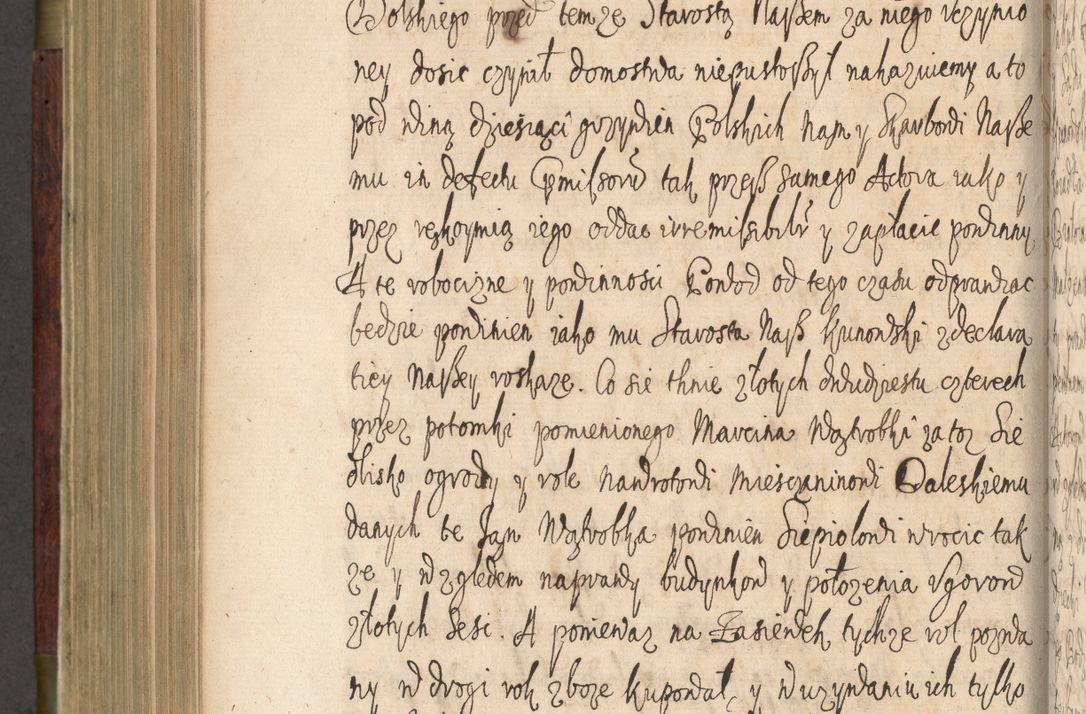 Polskiego przed temze Starostą Naßem za niego uczynio
ney dosic czynił domostwa niepustoßył nakazuiemy a to
pod winą dziesiąci grzywien Polskich Nam y Skarbowi Naße
mu in defectu tak przeß samego Actora iako y
przez rękoymią iego oddac irremissibilr y zapłacic powinny
A te robocizne y powinnosci od tego czasu odprawiac
bedzie powinien iako mu Starosta Naß Kunowski zdeclara
tiey Naßey roskaze. Co sie tknie złotych dwudziestu czterech
przez potomki pomienionego Marcina Wątrobki za toz Sie
dlisko ogrody y role Nawrotowi Miesczaninowi Daleskiemu
danych te Jan Wątrobka powinien Siepiolowi wrocic tak
ze y względem naprawy budynkow y połozenia Ugorow
złotych sesc. A poniewaz na Zasiewek tychze rol pozwa
ny w drogi rok zboze kupował, y w uzywaniu ich tylko